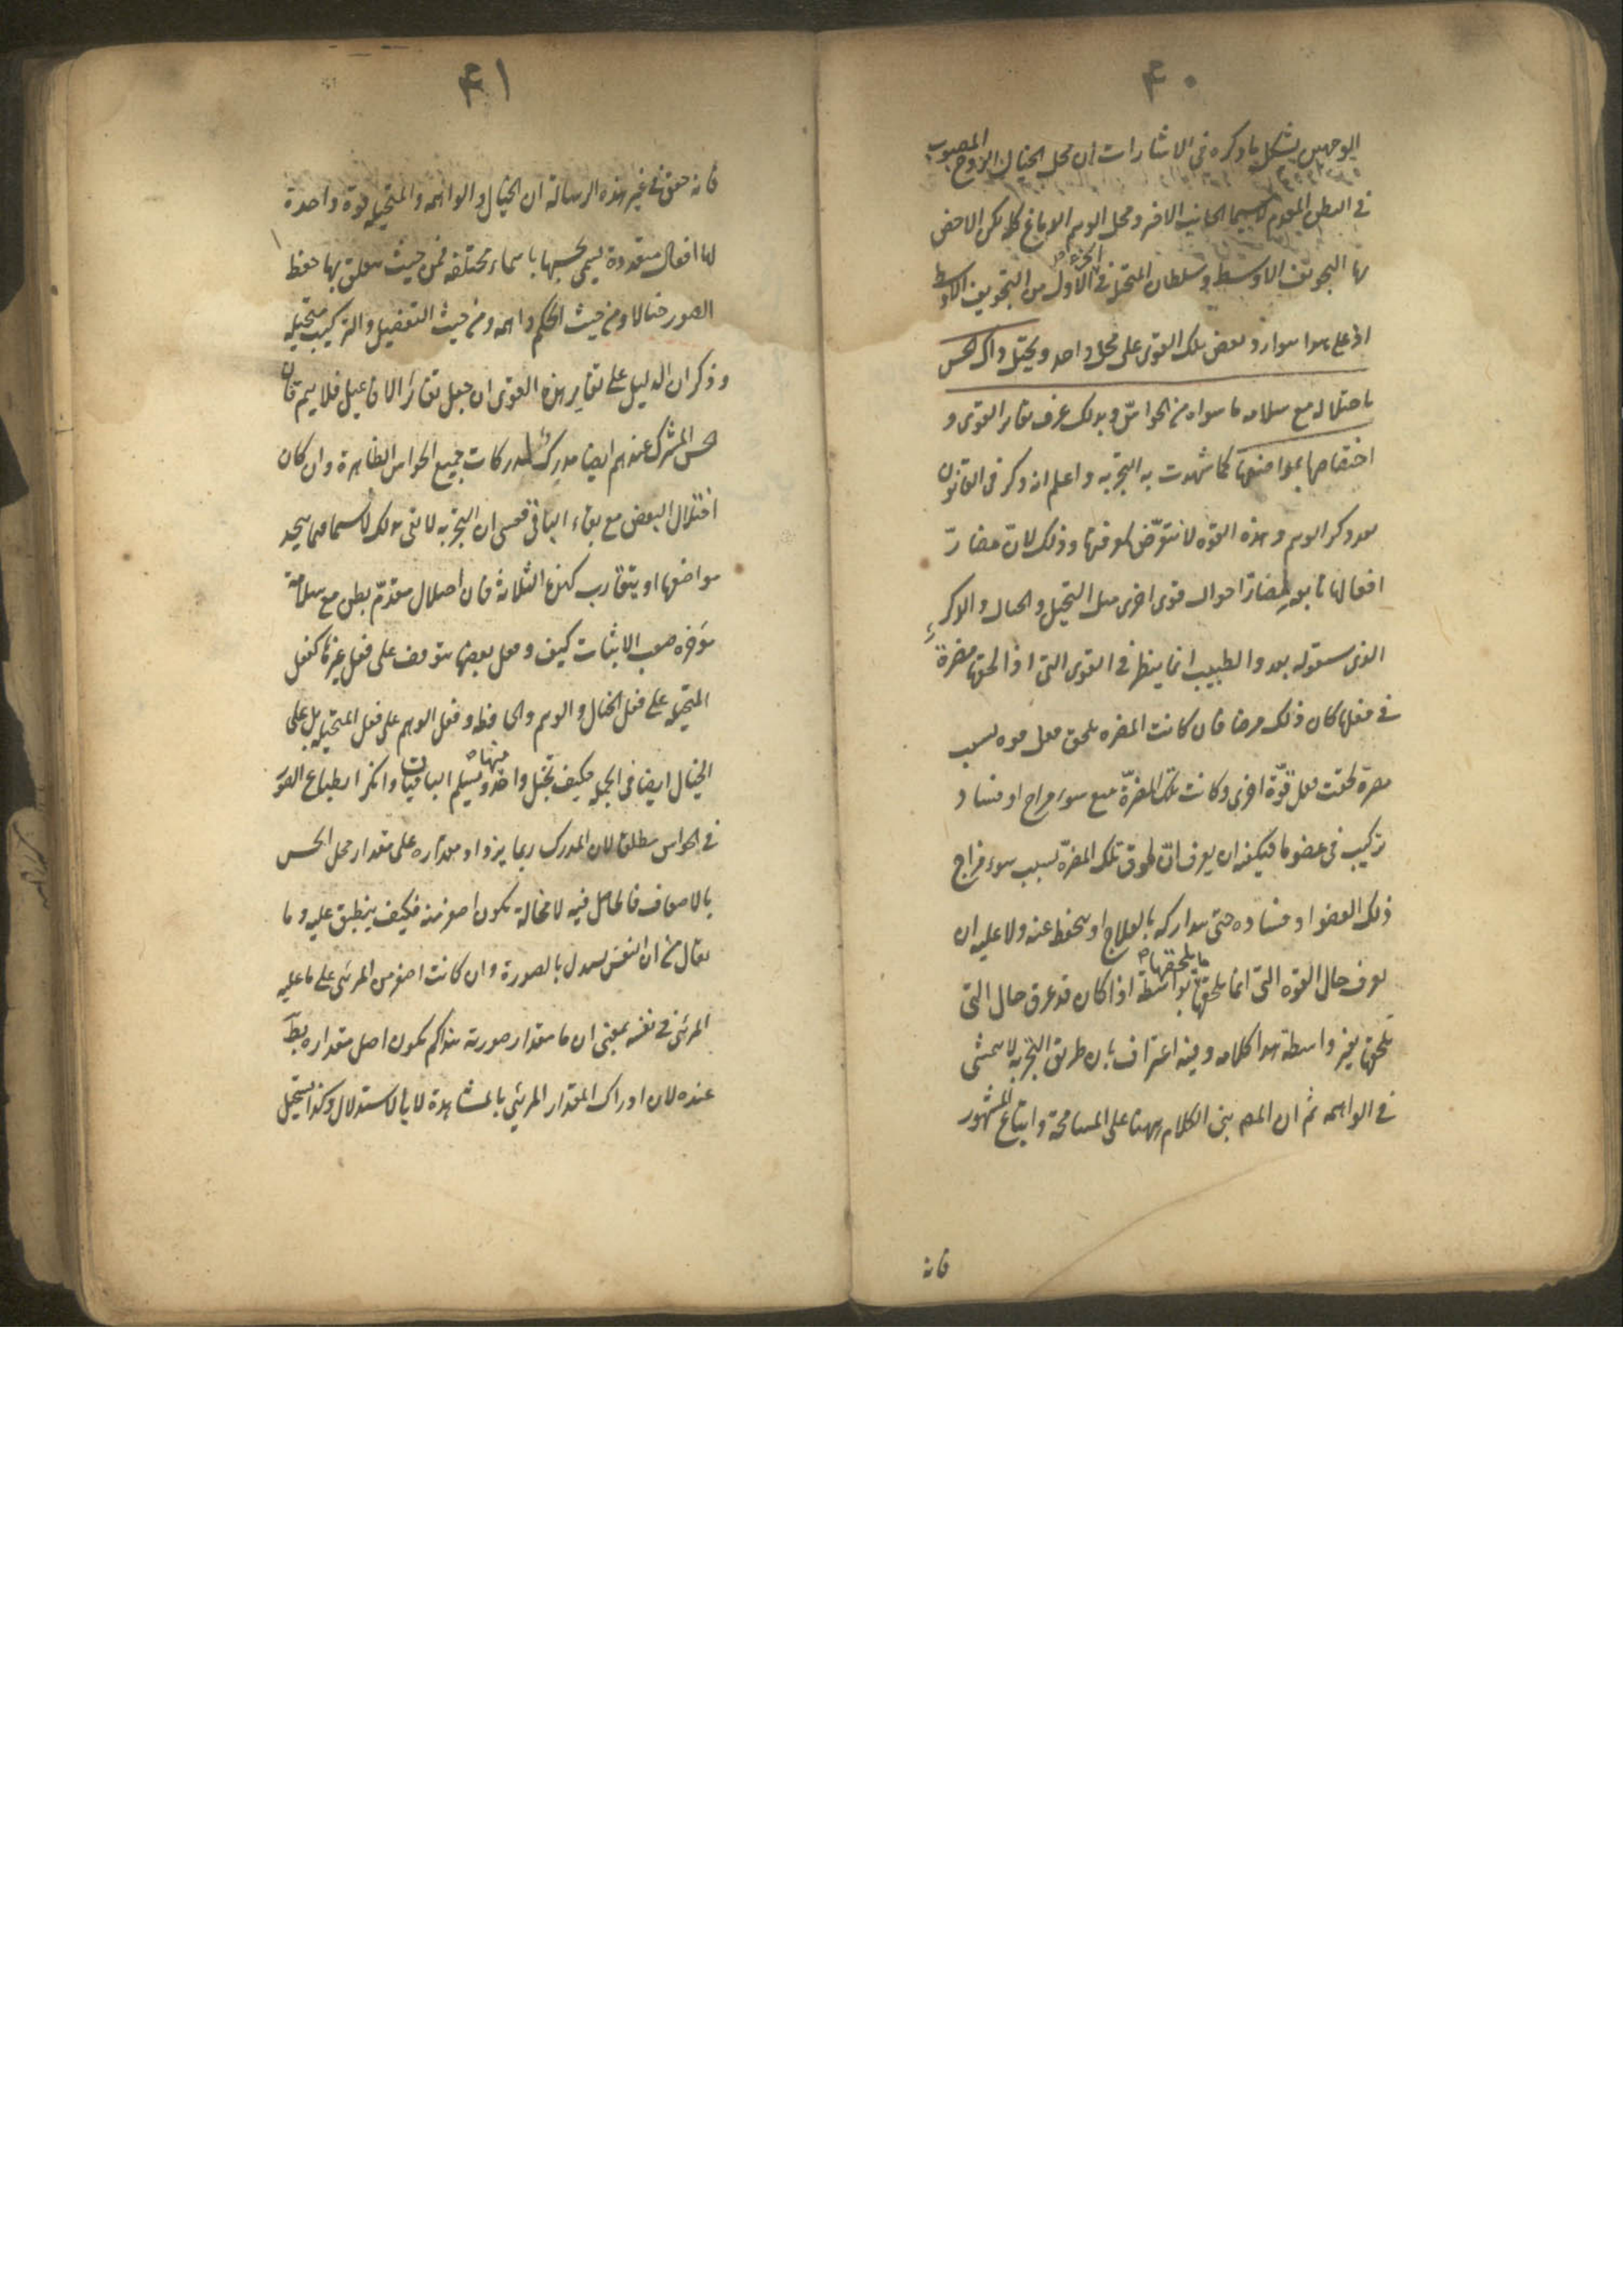 ۴۰
الوجهين يشكل بما ذكره في الاشارات ان محل الخيال الروح المصبوب
في البطن المقدم لا سيما الجانب الاخر ومحل الوهم الدماغ كله لكن الاخص
بها التجويف الاوسط وسلطان المتخيلة في الجزء الاول من التجويف الاوسط
اذ على هذا توارد بعض تلك القوى على محل واحد ويختل ذاك الحس
باختلاله مع سلامة ما سواه من الحواس وبذلك عرف تغاير القوى و
اختصاصها بمواضعها كما شهدت به التجربة واعلم انه ذكر في القانون
بعد ذكر الوهم وهذه القوة لا نتعرض لمعرفتها وذلك لان مضار
افعالها تابعة لمضار احوال قوى اخرى مثل التخيل والخيال والذكر
الذي سنقوله بعد والطبيب انما ينظر في القوى التي اذا لحقها مضرة
في فعلها كان ذلك مرضا فان كانت المضرة تلحق فعل قوة بسبب
مضرة لحقت فعل قوة اخرى وكانت تلك المضرة تتبع سوء مزاج او فساد
تركيب في عضو ما فيكفيه ان يعرف ان لحوق تلك المضرة بسبب سوء مزاج
ذلك العضو او فساده حتى يتداركه بالعلاج او يتحفظ عنه ولا عليه ان
يعرف حال القوة التي انما يلحقها ما يلحقها بواسطة اذا كان قد عرف حال التي
يلحقها بغير واسطة هذا كلامه وفيه اعتراف بان طريق التجربة لا يتمشى
في الواهمة ثم ان المص بنى الكلام ههنا على المسامحة واتباع المشهور
فانه
۴۱
فانه حقق في غير هذه الرسالة ان الخيال والواهمة والمتخيلة قوة واحدة
لها افعال متعددة يسمى بحسبها باسماء مختلفة فمن حيث يتعلق بها حفظ
الصور خيالا ومن حيث الحكم واهمة ومن حيث التفصيل والتركيب متخيلة
وذكر ان الدليل على تغاير هذه القوى ان جعل تغاير الافاعيل فلا يتم فان
الحس المشترك عندهم ايضا مدرك لمدركات جميع الحواس الظاهرة وان كان
اختلال البعض مع بقاء الباقي فعسى ان التجربة لا تفي بذلك لا سيما فيما يتحد
مواضعها او يتقارب كهذه الثلاثة فان اختلال مقدم بطن مع سلامة
مؤخره صعب الاثبات كيف وفعل بعضها يتوقف على فعل غيرها كفعل
المتخيلة على فعل الخيال والوهم والحافظة وفعل الوهم على فعل المتخيلة بل على
الخيال ايضا في الجملة فكيف يختل واحد منها ويسلم الباقيات وانكر انطباع الصور
في الحواس مطلقا لان المدرك ربما يزداد مقداره على مقدار محل الحس
بالاضعاف فالحاصل فيه لا محالة يكون اصغر منه فكيف ينطبق عليه وما
يقال من ان النفس يستدل بالصورة وان كانت اصغر من المرئي على ما عليه
المرئي في نفسه بمعنى ان ما مقدار صورته هذا كم يكون اصل مقداره بط
عنده لان ادراك المقدار المرئي بالمشاهدة لا بالاستدلال وكذا يستحيل